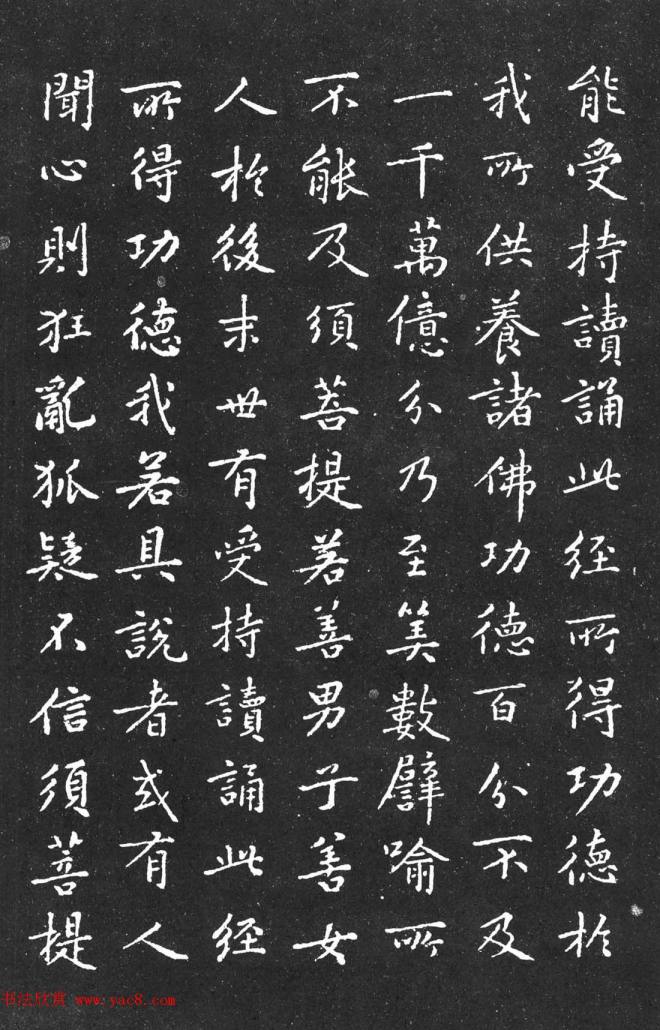 能受持讀誦此経所得功德於
我所供養諸佛功德百分不及
一千萬億分乃至筭數譬喻所
不能及須菩提若善男子善女
人於後末世有受持讀誦此経
所得功德我若具說者或有人
聞心則狂亂狐疑不信須菩提
书法欣赏 www.yac8.com